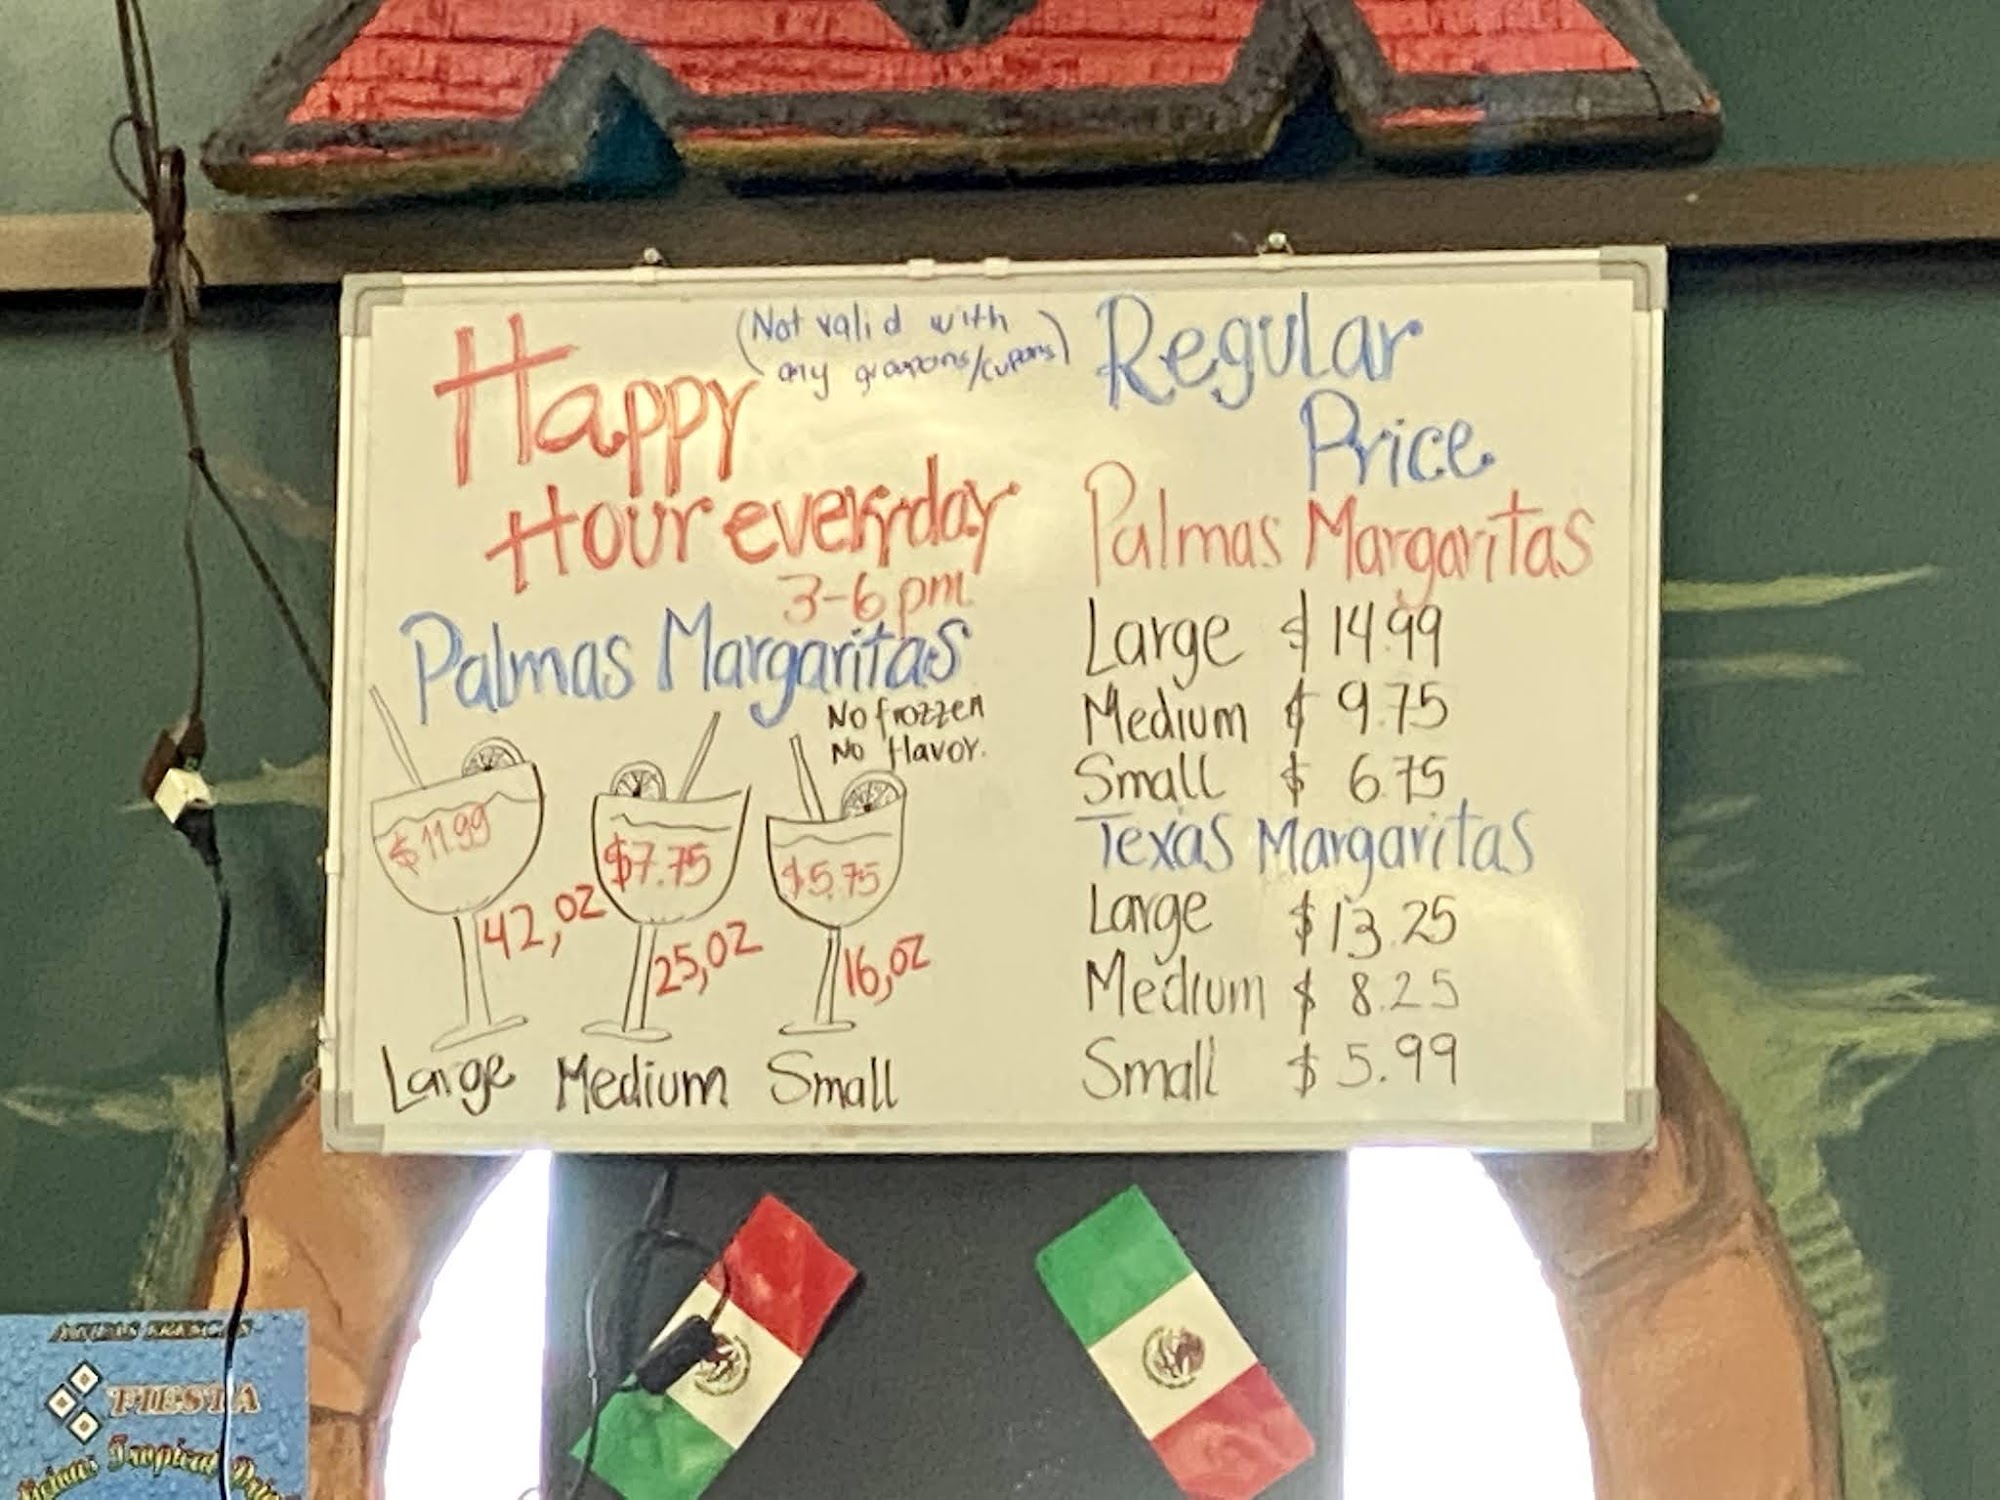 Happy
(Not valid with
any groupons/cupons)
Hour everyday
3-6 pm
Palmas Margaritas
No frozzen
No flavor.
$11.99
$7.75
$5.75
42,oz
25,oz
16,oz
Large Medium Small
Regular
Price
Palmas Margaritas
Large $14.99
Medium $9.75
Small $6.75
Texas Margaritas
Large $13.25
Medium $8.25
Small $5.99
AGUAS FRESCAS
FIESTA
Tropical